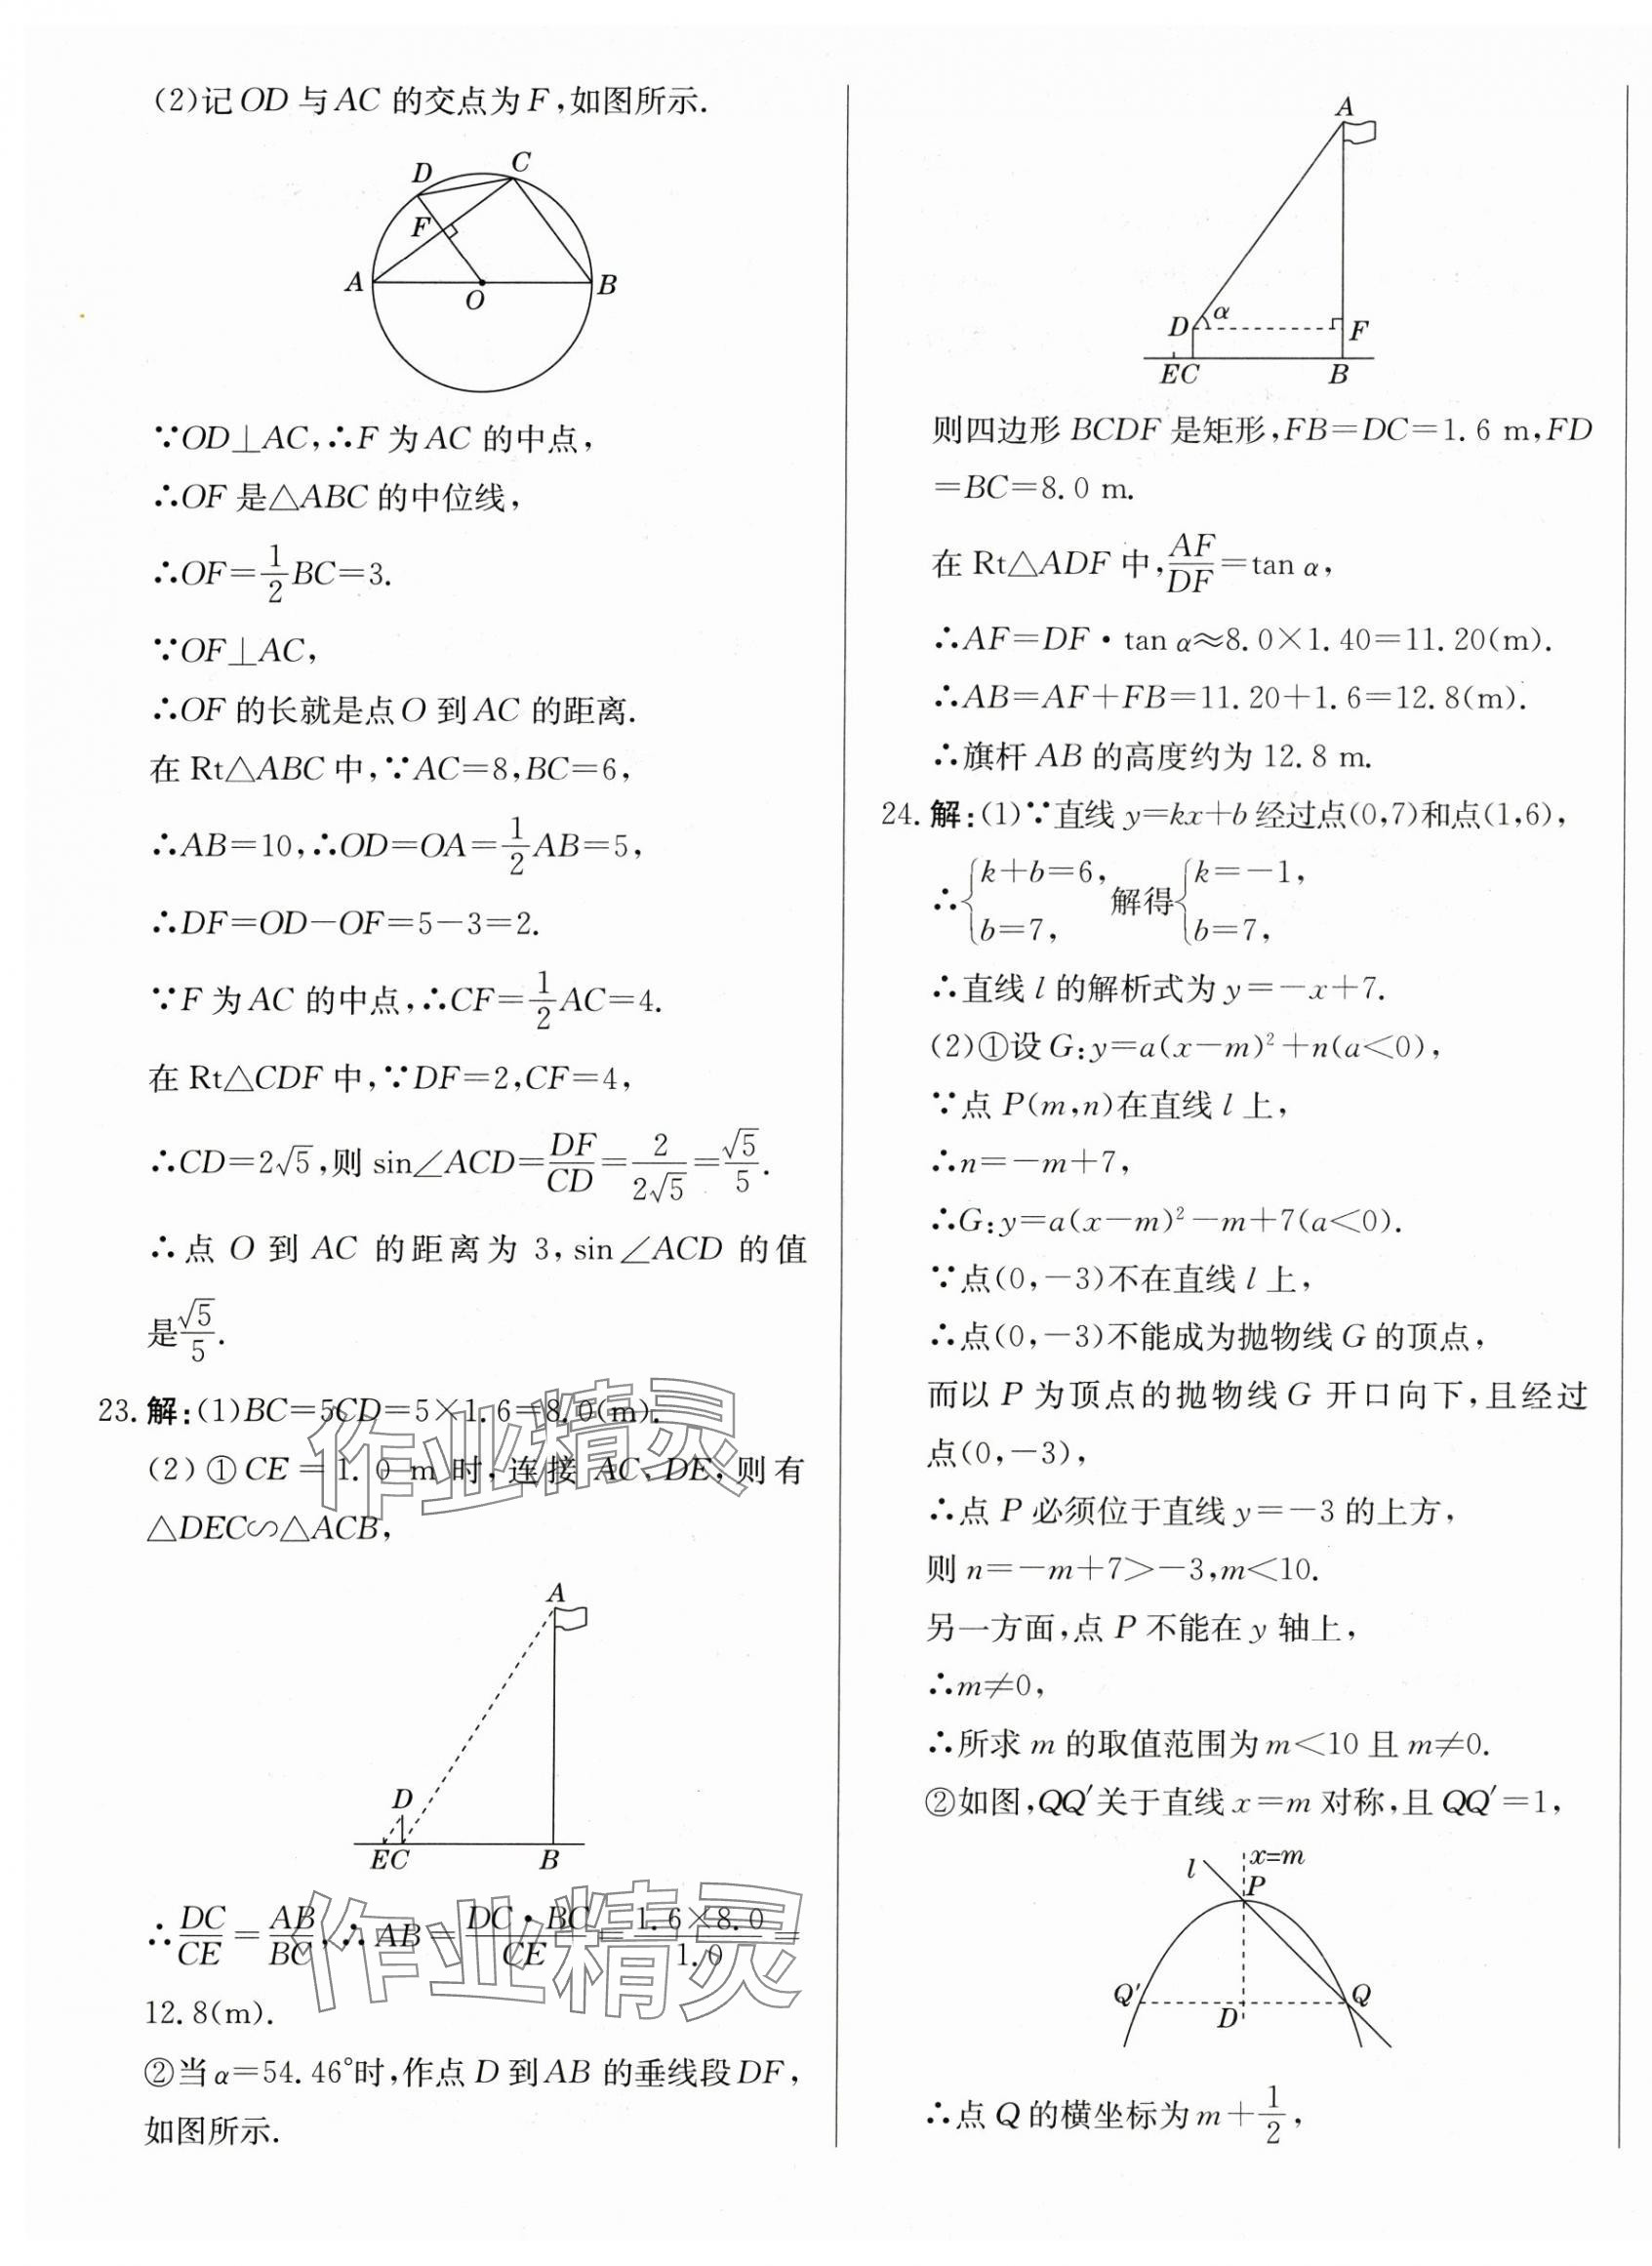 (2)记OD与AC的交点为F,如图所示.
D
C
F
A
O
B
∵OD⊥AC,∴F为AC的中点,
∴OF是△ABC的中位线,
∴OF=\frac{1}{2}BC=3.
∵OF⊥AC,
∴OF的长就是点O到AC的距离.
在Rt△ABC中,∵AC=8,BC=6,
∴AB=10,∴OD=OA=\frac{1}{2}AB=5,
∴DF=OD-OF=5-3=2.
∵F为AC的中点,∴CF=\frac{1}{2}AC=4.
在Rt△CDF中,∵DF=2,CF=4,
∴CD=2√5,则sin∠ACD=\frac{DF}{CD}=\frac{2}{2√5}=\frac{√5}{5}.
∴点O到AC的距离为3,sin∠ACD的值
是\frac{√5}{5}.
23.解:(1)BC=5CD=5×1.6=8.0(m).
(2)①CE=1.0 m时,连接AC、DE,则有
△DEC∽△ACB,
A
D
EC
B
∴\frac{DC}{CE}=\frac{AB}{BC},∴AB=\frac{DC·BC}{CE}=\frac{1.6×8.0}{1.0}=
12.8(m).
②当α=54.46°时,作点D到AB的垂线段DF,
如图所示.
作业精灵
作业精灵
A
D
α
F
EC
B
则四边形BCDF是矩形,FB=DC=1.6 m,FD
=BC=8.0 m.
在Rt△ADF中,\frac{AF}{DF}=tan α,
∴AF=DF·tan α≈8.0×1.40=11.20(m).
∴AB=AF+FB=11.20+1.6=12.8(m).
∴旗杆AB的高度约为12.8 m.
24.解:(1)∵直线y=kx+b经过点(0,7)和点(1,6),
∴{k+b=6, b=7, 解得{k=-1, b=7,
∴直线l的解析式为y=-x+7.
(2)①设G:y=a(x-m)²+n(a<0),
∵点P(m,n)在直线l上,
∴n=-m+7,
∴G:y=a(x-m)²-m+7(a<0).
∵点(0,-3)不在直线l上,
∴点(0,-3)不能成为抛物线G的顶点,
而以P为顶点的抛物线G开口向下,且经过
点(0,-3),
∴点P必须位于直线y=-3的上方,
则n=-m+7>-3,m<10.
另一方面,点P不能在y轴上,
∴m≠0,
∴所求m的取值范围为m<10且m≠0.
②如图,QQ′关于直线x=m对称,且QQ′=1,
l
x=m
P
Q′
D
Q
∴点Q的横坐标为m+\frac{1}{2},